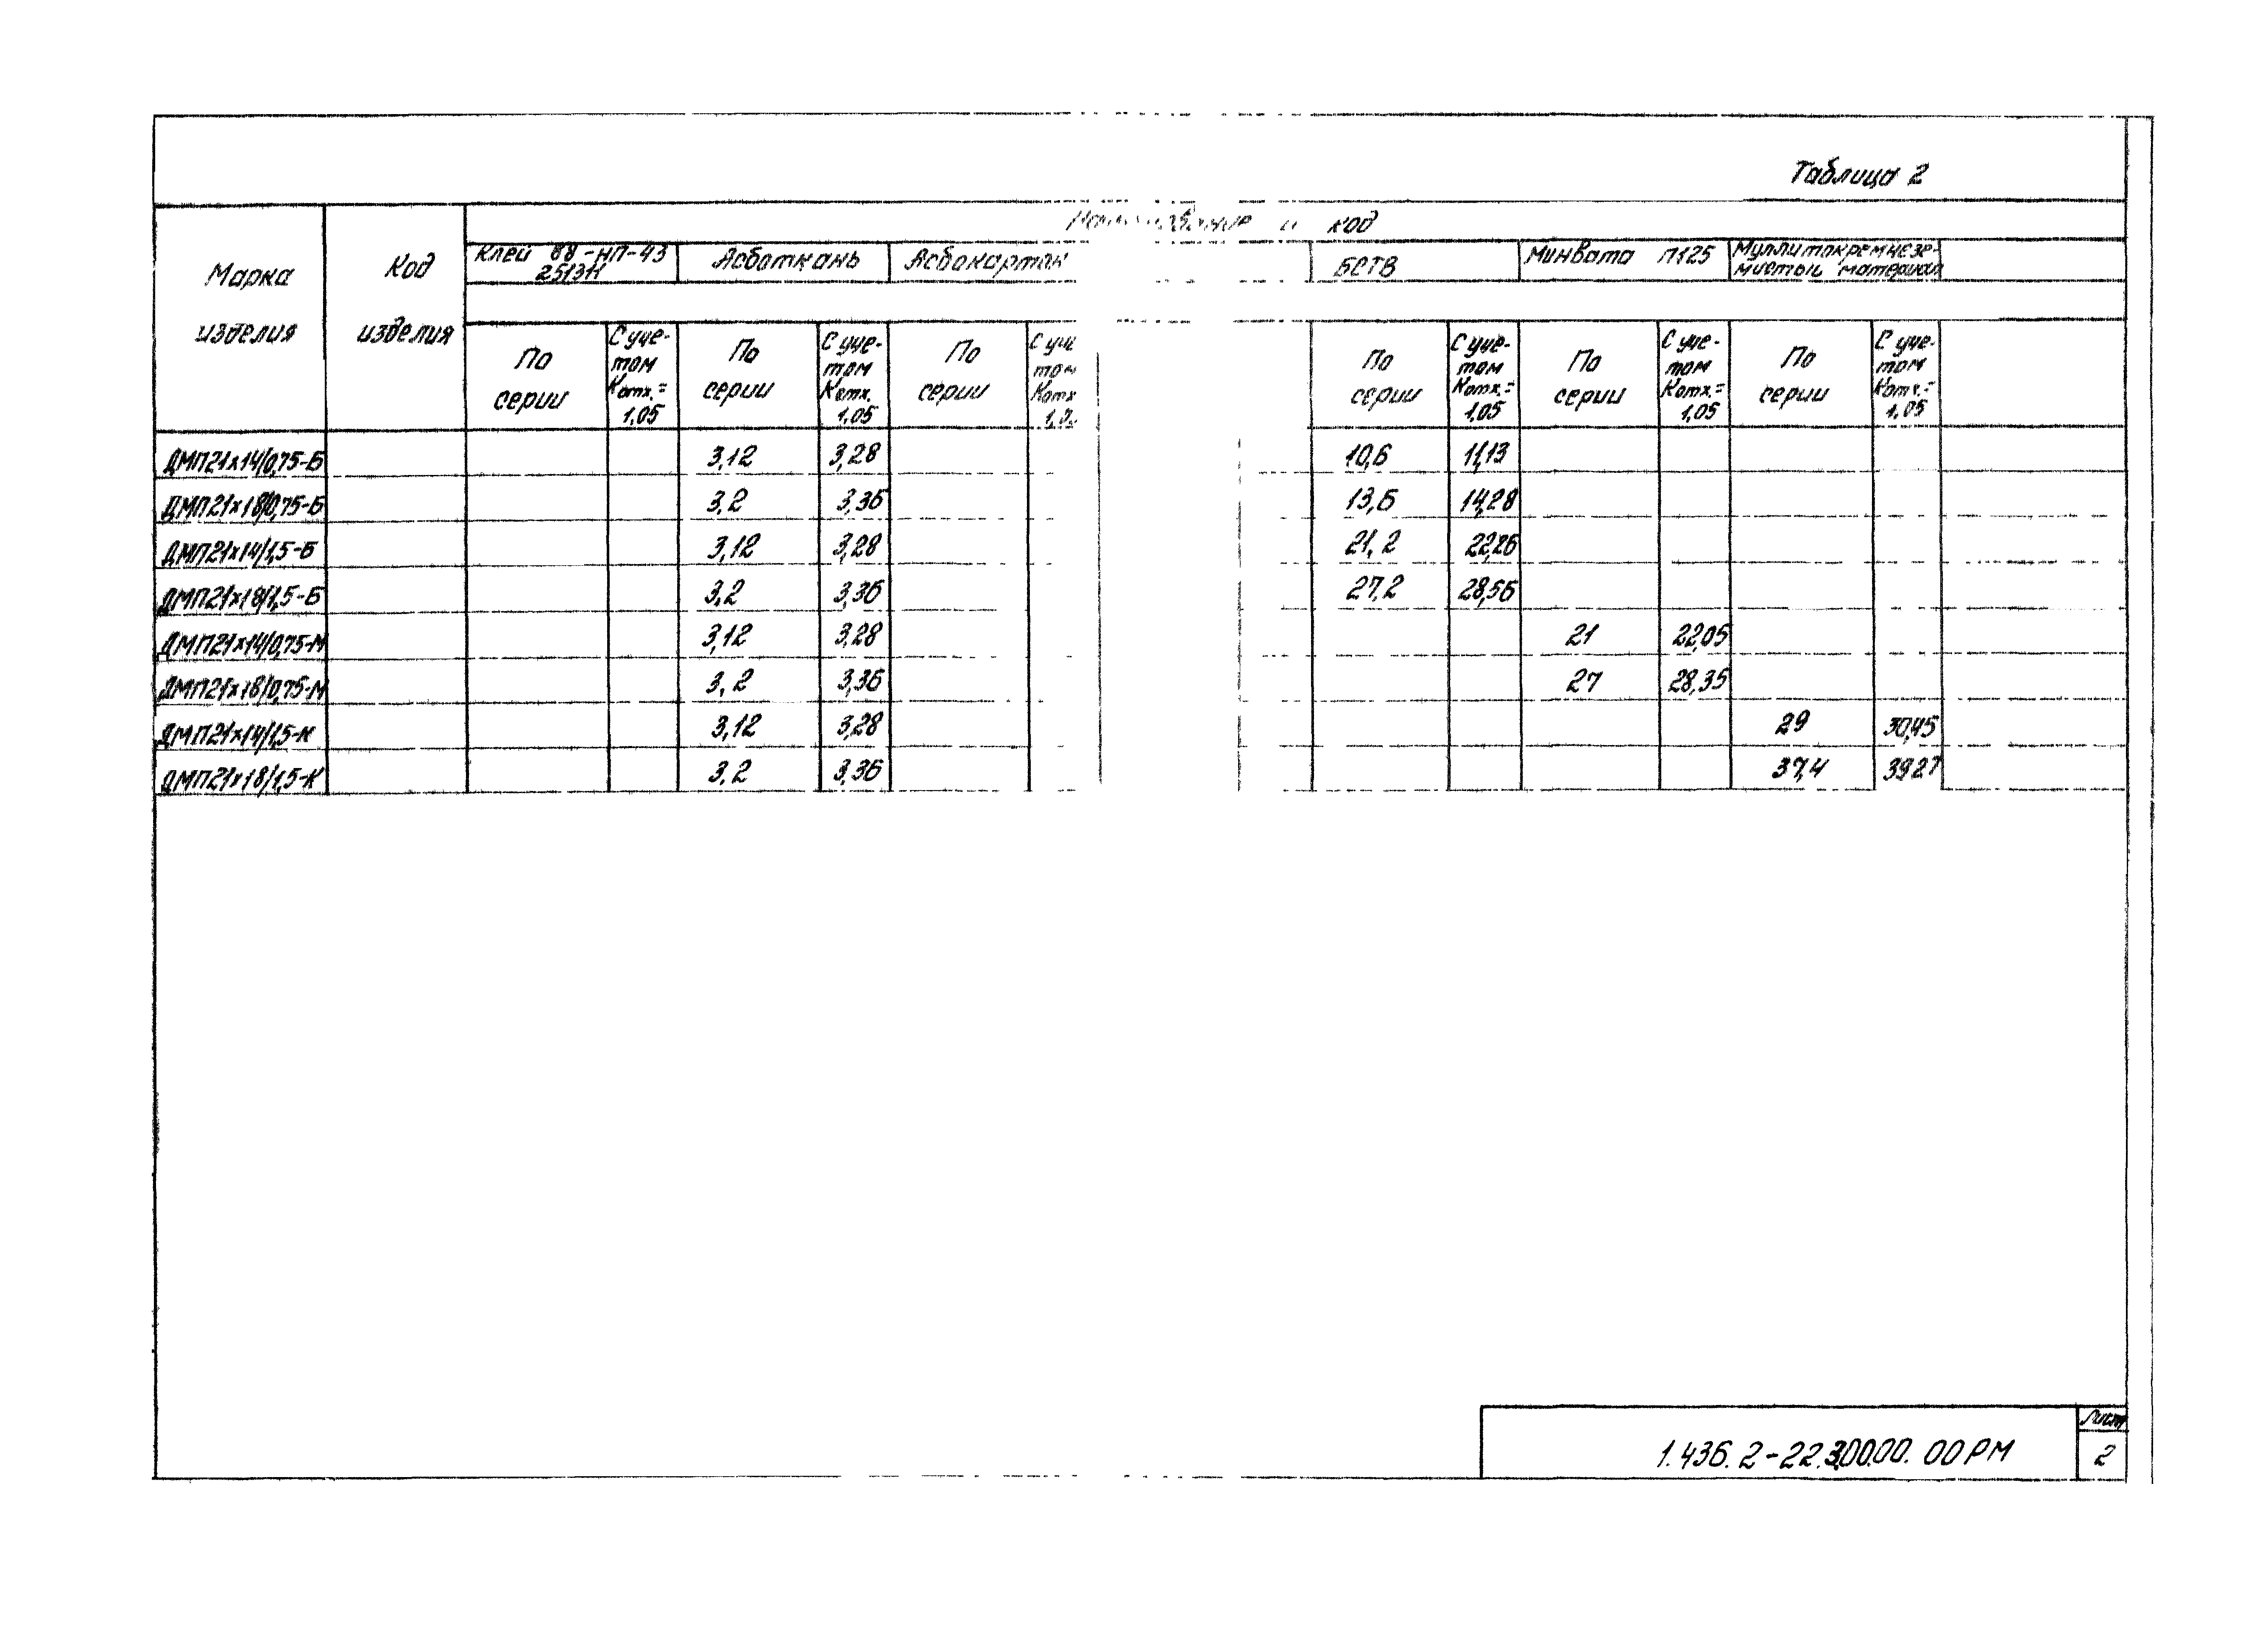 Таблица 2
Наименование и код
Марка изделия
Код изделия
Клей 88-НП-43 251311
Асботкань
Асбокартон
БСТВ
Минвата П125
Муллитокремнезе-
мистый материал
По серии
С уче-том Котх.= 1,05
По серии
С уче-том Котх. 1,05
По серии
С уче том Котх
По серии
С уче-том Котх.= 1,05
По серии
С уче-том Котх.= 1,05
По серии
С уче-том Котх.= 1,05
ДМП21х14/0,75-Б 3,12 3,28 10,6 11,13
ДМП21х18/0,75-Б 3,2 3,36 13,6 14,28
ДМП21х14/1,5-Б 3,12 3,28 21,2 22,26
ДМП21х18/1,5-Б 3,2 3,36 27,2 28,56
ДМП21х14/0,75-М 3,12 3,28 21 22,05
ДМП21х18/0,75-М 3,2 3,36 27 28,35
ДМП21х14/1,5-К 3,12 3,28 29 30,45
ДМП21х18/1,5-К 3,2 3,36 37,4 39,27
1.436.2-22.300.00.00РМ
Лист
2